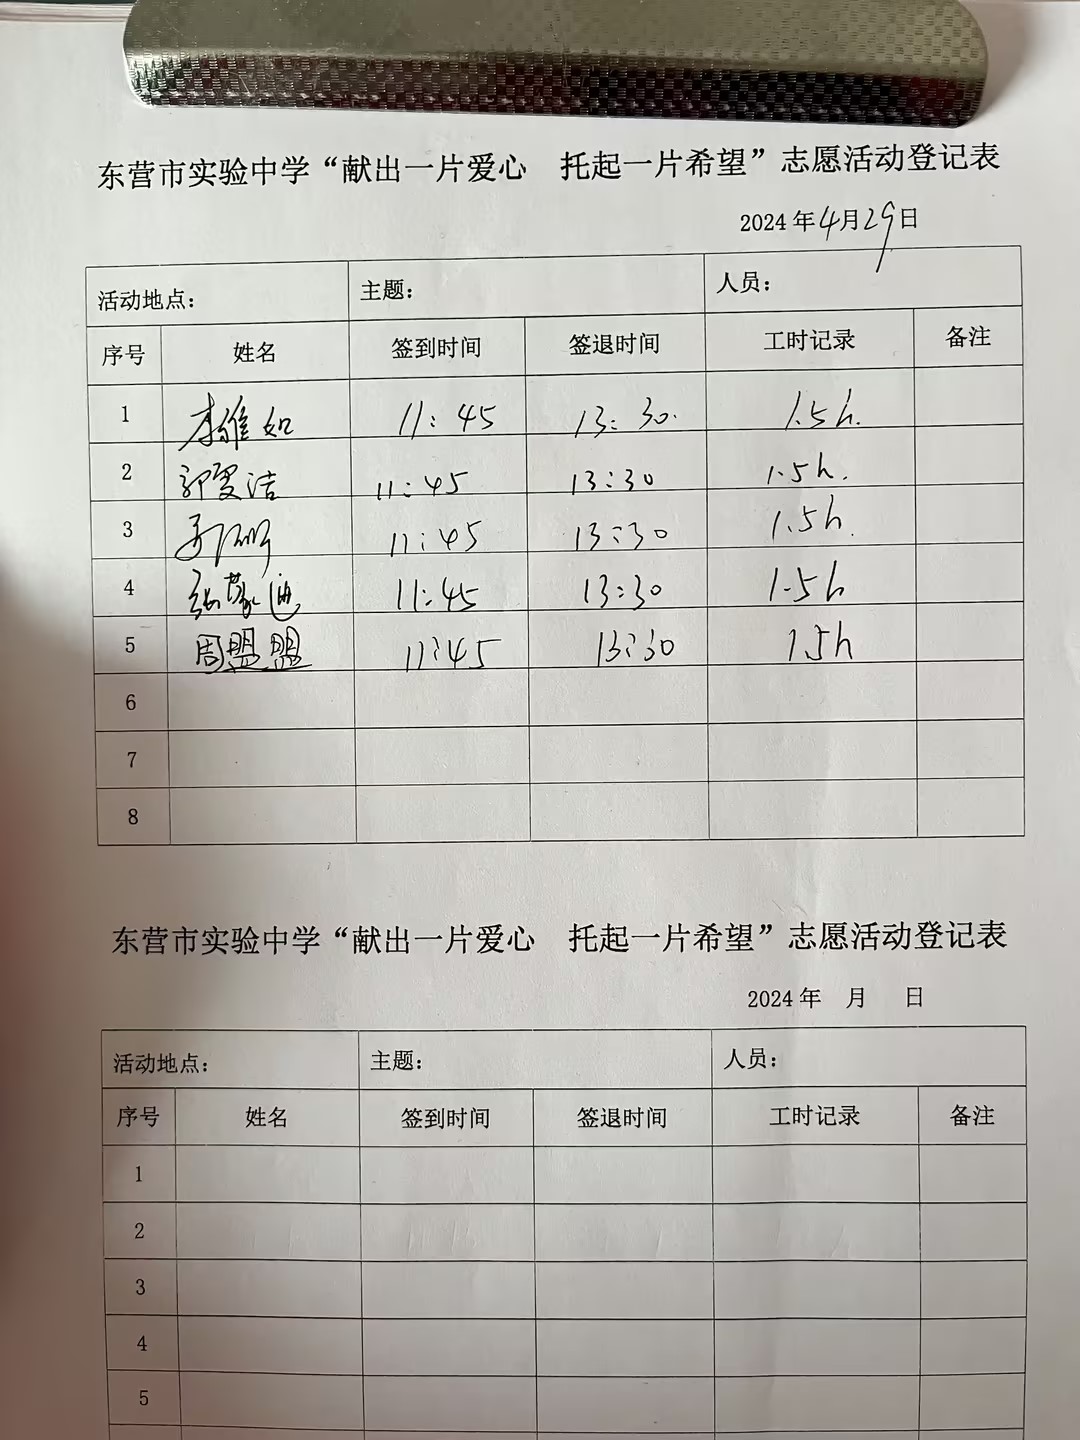 东营市实验中学“献出一片爱心 托起一片希望”志愿活动登记表
2024年4月29日
活动地点: 主题: 人员:
序号 姓名 签到时间 签退时间 工时记录 备注
1 李维如 11:45 13:30. 1.5h.
2 郭爱洁 11:45 13:30 1.5h.
3 11:45 13:30 1.5h.
4 张蒙迪 11:45 13:30 1.5h
5 周盟盟 11:45 13:30 1.5h
6
7
8
东营市实验中学“献出一片爱心 托起一片希望”志愿活动登记表
2024年 月 日
活动地点: 主题: 人员:
序号 姓名 签到时间 签退时间 工时记录 备注
1
2
3
4
5